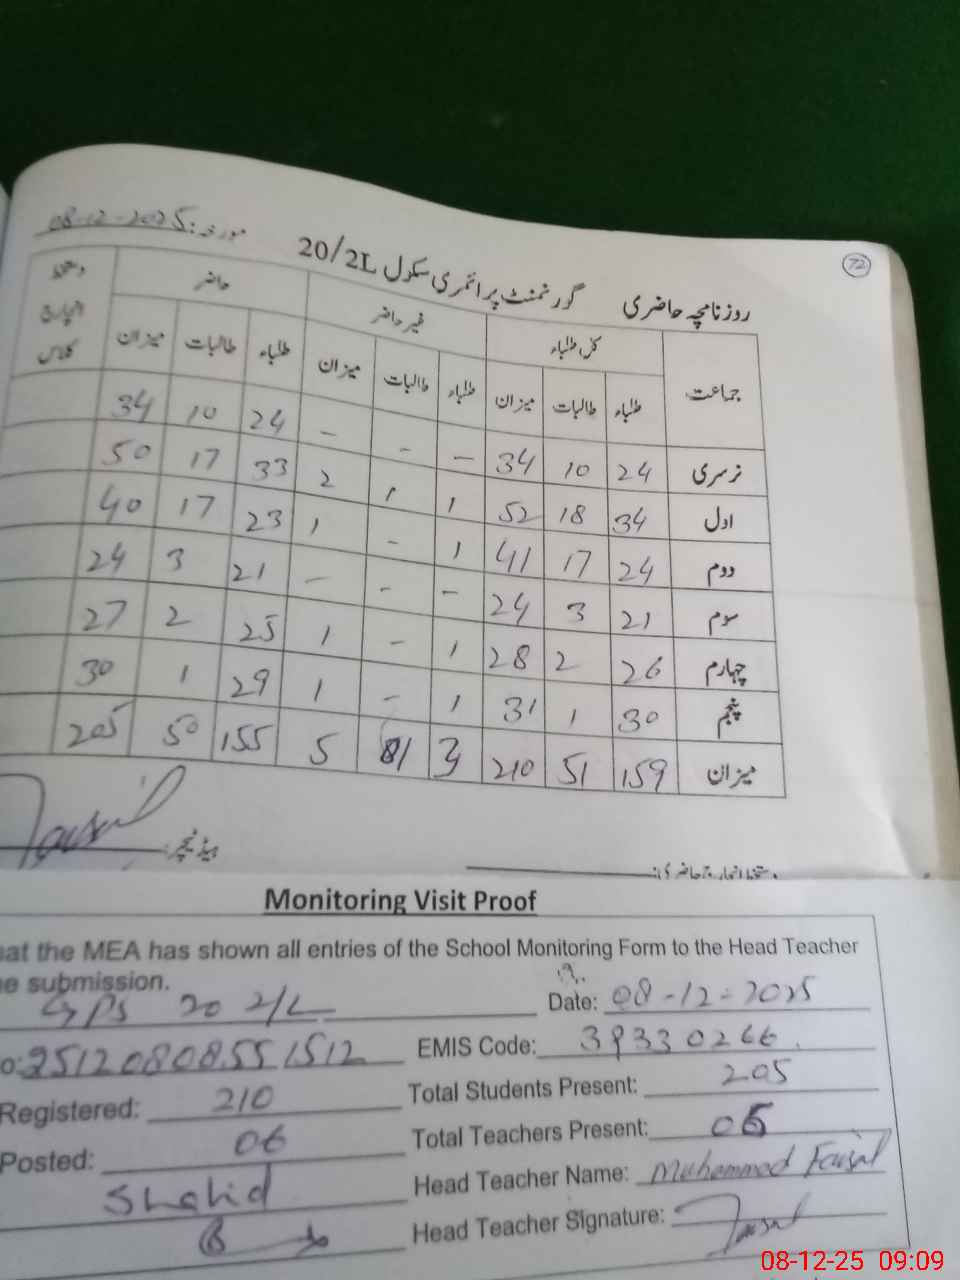 72
روزنامچہ حاضری گورنمنٹ پرائمری سکول 20/2L مورخہ: 08-12-2025
جماعت کل طلباء غیر حاضر حاضر دستخط انچارج کلاس
طلباء طالبات میزان طلباء طالبات میزان طلباء طالبات میزان
نرسری 24 10 34 - - - 24 10 34
اول 34 18 52 1 1 2 33 17 50
دوم 24 17 41 1 - 1 23 17 40
سوم 21 3 24 - - - 21 3 24
چہارم 26 2 28 1 - 1 25 2 27
پنجم 30 1 31 1 - 1 29 1 30
میزان 159 51 210 5 155 50 205
ہیڈ ٹیچر: Faisal
Monitoring Visit Proof
at the MEA has shown all entries of the School Monitoring Form to the Head Teacher
e submission.
GPS 20 2/L Date: 08-12-2025
o: 2512080855 1512 EMIS Code: 39330266
Registered: 210 Total Students Present: 205
Posted: 06 Total Teachers Present: 06
Shahid Head Teacher Name: Muhammad Faisal
Head Teacher Signature: Faisal
08-12-25 09:09